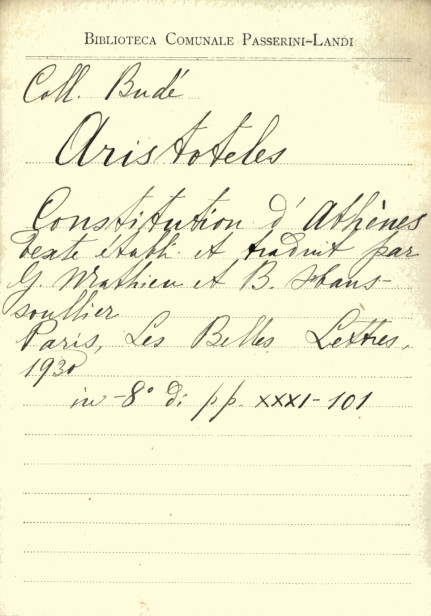 Biblioteca Comunale Passerini-Landi
Coll. Budé
Aristoteles
Constitution d'Athènes
texte établi et traduit par
G Mathieu et B. Haus-
soullier
Paris, Les Belles Lettres.
1930
in-8° di pp. XXXI-101